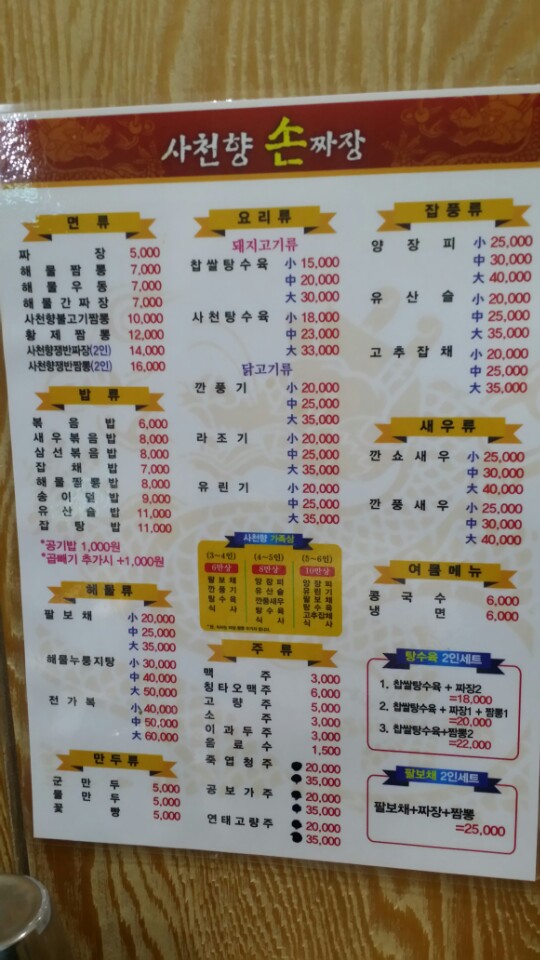 사천향 손짜장
면류
짜장 5,000
해물짬뽕 7,000
해물우동 7,000
해물간짜장 7,000
사천향불고기짬뽕 10,000
황제짬뽕 12,000
사천향쟁반짜장(2인) 14,000
사천향쟁반짬뽕(2인) 16,000
밥류
볶음밥 6,000
새우볶음밥 8,000
삼선볶음밥 8,000
잡채밥 7,000
해물짬뽕밥 8,000
송이덮밥 9,000
유산슬밥 11,000
잡탕밥 11,000
*공기밥 1,000원
*곱빼기 추가시 +1,000원
해물류
팔보채 小 20,000
中 25,000
大 35,000
해물누룽지탕 小 30,000
中 40,000
大 50,000
전가복 小 40,000
中 50,000
大 60,000
만두류
군만두 5,000
물만두 5,000
꽃빵 5,000
요리류
돼지고기류
찹쌀탕수육 小 15,000
中 20,000
大 30,000
사천탕수육 小 18,000
中 23,000
大 33,000
닭고기류
깐풍기 小 20,000
中 25,000
大 35,000
라조기 小 20,000
中 25,000
大 35,000
유린기 小 20,000
中 25,000
大 35,000
사천향 가족상
(3~4인) (4~5인) (5~6인)
6만상 8만상 10만상
팔보채 양장피 양장피
깐풍기 유산슬 유린기
탕수육 깐풍새우 팔보채
식사 탕수육 탕수육
식사 고추잡채
식사
주류
맥주 3,000
칭타오맥주 6,000
고량주 5,000
소주 3,000
이과두주 3,000
음료수 1,500
죽엽청주 20,000
35,000
공보가주 20,000
35,000
연태고량주 20,000
35,000
잡풍류
양장피 小 25,000
中 30,000
大 40,000
유산슬 小 20,000
中 25,000
大 35,000
고추잡채 小 20,000
中 25,000
大 35,000
새우류
깐쇼새우 小 25,000
中 30,000
大 40,000
깐풍새우 小 25,000
中 30,000
大 40,000
여름메뉴
콩국수 6,000
냉면 6,000
탕수육 2인세트
1. 찹쌀탕수육 + 짜장2
=18,000
2. 찹쌀탕수육 + 짜장1 + 짬뽕1
=20,000
3. 찹쌀탕수육+짬뽕2
=22,000
팔보채 2인세트
팔보채+짜장+짬뽕
=25,000